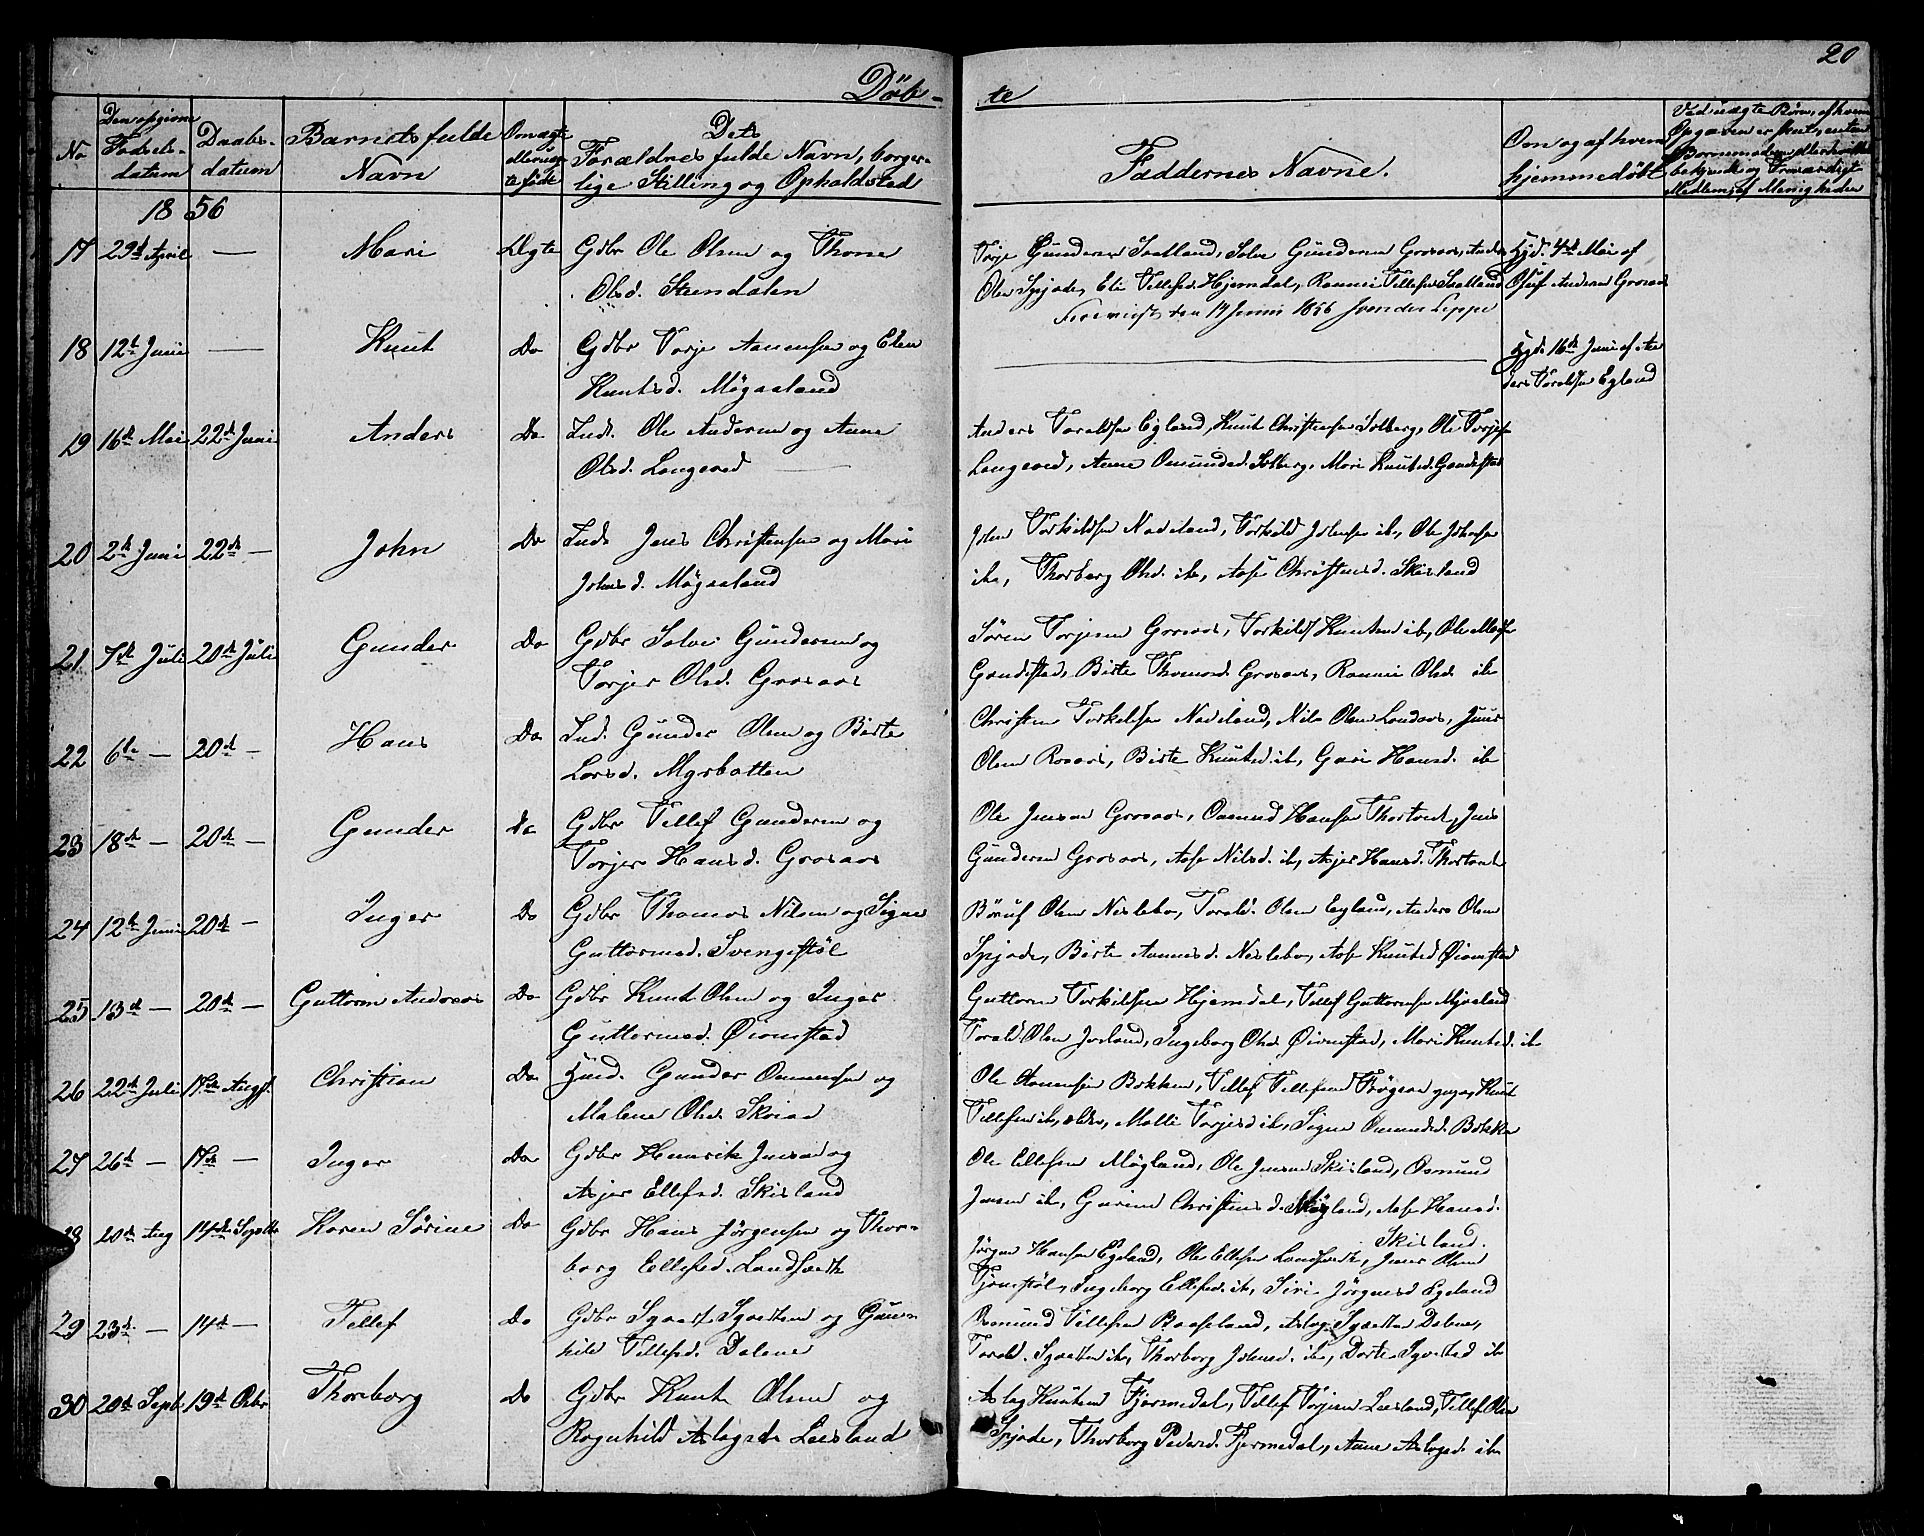 20
Døb-
te
No
Den opgivne Fødsels-datum
Daabs-datum
Barnets fulde Navn
Om ægte eller uægte født
Dets Forældres fulde Navn, borger-
lige Stilling og Opholdsted
Faddernes Navne.
Om og af hvem hjemmedøbt
Ved uægte Børn, af hvem
Opgaven er skeet, enten
Barnemoderen eller
bekjendt og Troværdigt
Medlem af Menigheden
1856
17 29d April — Mari Ægte Gdbr Ole Olsen og Thone
Olsd. Stendalen
Torje Gundersen Saatland, Salve Gundersen Grosaas, Anders
Olsen Spjode, Eli Tellefsd. Hjemdal, Ronnei Tellefsen Saatland
den 14 Juni 1856
Hjd. 4de Mai af
Oluf Andersen Grosaas
18 12te Juni — Knut Do Gdbr Torje Aanensen og Elen
Knutsd. Møgaaland
Hjd. 16de Juni af An-
ders Toralsen Egland
19 16de Mai 22de Juni Anders Do Ind. Ole Andersen og Anne
Olsd. Langeved
Anders Toraldsen Egland, Knut Christensen Solberg, Ole Torjesen
Langeved, Anne Omundsd. Solberg, Mari Knutsd. Gondestad
20 2de Juni 22de — John Do Ind. Jens Christensen og Mari
Johnsd. Møgaaland
John Torkildsen Naveland, Torkild Johnsen ib, Ole Johnsen
ib, Thorborg Olsd. ib, Aase Christensd. Skisland
21 7de Juli 20de Juli Gunder Do Gdbr Salve Gundersen og
Torjer Olsd. Grosaas
Søren Torjesen Grosaas, Torkild Knutsen ib, Ole
Gondestad, Birte Thomasd. Grosaas, Ronnei Olsd. ib
22 6te — 20de — Hans Do Ind. Gunder Olsen og Birte
Larsd. Myrbotten
Christen Torkelsen Naveland, Nils Olsen Landaas, Jens
Olsen Rosaas, Birte Knutsd. ib, Guri Hansd. ib
23 18de — 20de — Gunder Do Gdbr Tellef Gundersen og
Torjer Hansd. Grosaas
Ole Jensen Grosaas, Omund Hansen Thortvedt, Jens
Gundersen Grosaas, Aase Nilsd. ib, Asjer Hansd. Thortvedt
24 12te Juni 20de — Inger Do Gdbr Thomas Nilsen og Signe
Guttormsd. Svengestøl
Børuf Olsen Neslebo, Torald Olsen Egland, Anders Olsen
Spjode, Birte Aanensd. Neslebo, Aase Knutsd Øiomstad
25 13de — 20de — Guttorm Andreas Do Gdbr Knut Olsen og Inger
Guttormsd. Øiomstad
Guttorm Torkildsen Hjemdal, Tellef Guttormsen Mjaaland
Torald Olsen Josland, Ingeborg Olsd. Øiomstad, Mari Knutsd. ib
26 22de Juli 17de Augst. Christian Do Hmd. Gunder Omundsen og
Malene Olsd. Skeiaa
Ole Aanensen Bokken, Tellef Tellefsen Frøysaa yngre, Knut
Tellefsen ib, ældre, Malli Torjesd ib, Signe Omundsd. Bokken
27 26de — 17de — Inger Do Gdbr Henrik Jensen og
Asjer Ellefsd. Skisland
Ole Ellefsen Møgland, Ole Jensen Skisland, Osmund
Jensen ib, Gurine Christensd. Møgland, Aase Hansd.
Skisland.
28 20de Aug 14de Septbr Karen Sørine Do Gdbr Hans Jørgensen og Thor-
borg Ellefsd. Landfædt
Jørgen Hansen Egeland, Ole Ellefsen Landfædt, Jens Olsen
Tjomstøl, Ingeborg Ellefsd. ib, Siri Jørgensd Egeland
29 23de — 14de — Tellef Do Gdbr Syvert Syvertsen og Gun-
hild Tellefsd. Dalene
Osmund Tellefsen Baaseland, Aslag Syvertsen Dalene,
Torald Syvertsen ib, Thorborg Johnsd. ib, Dorte Syvertsd ib
30 20de Sept. 19de Octbr Thorborg Do Gdbr Knut Olsen og
Ragnhild Aslagsd. Leesland
Aslag Knutsen Fjermedal, Tellef Torjesen Leesland, Tellef Olsen
Spjode, Thorborg Pedersd. Fjermedal, Anne Aslagsd. ib